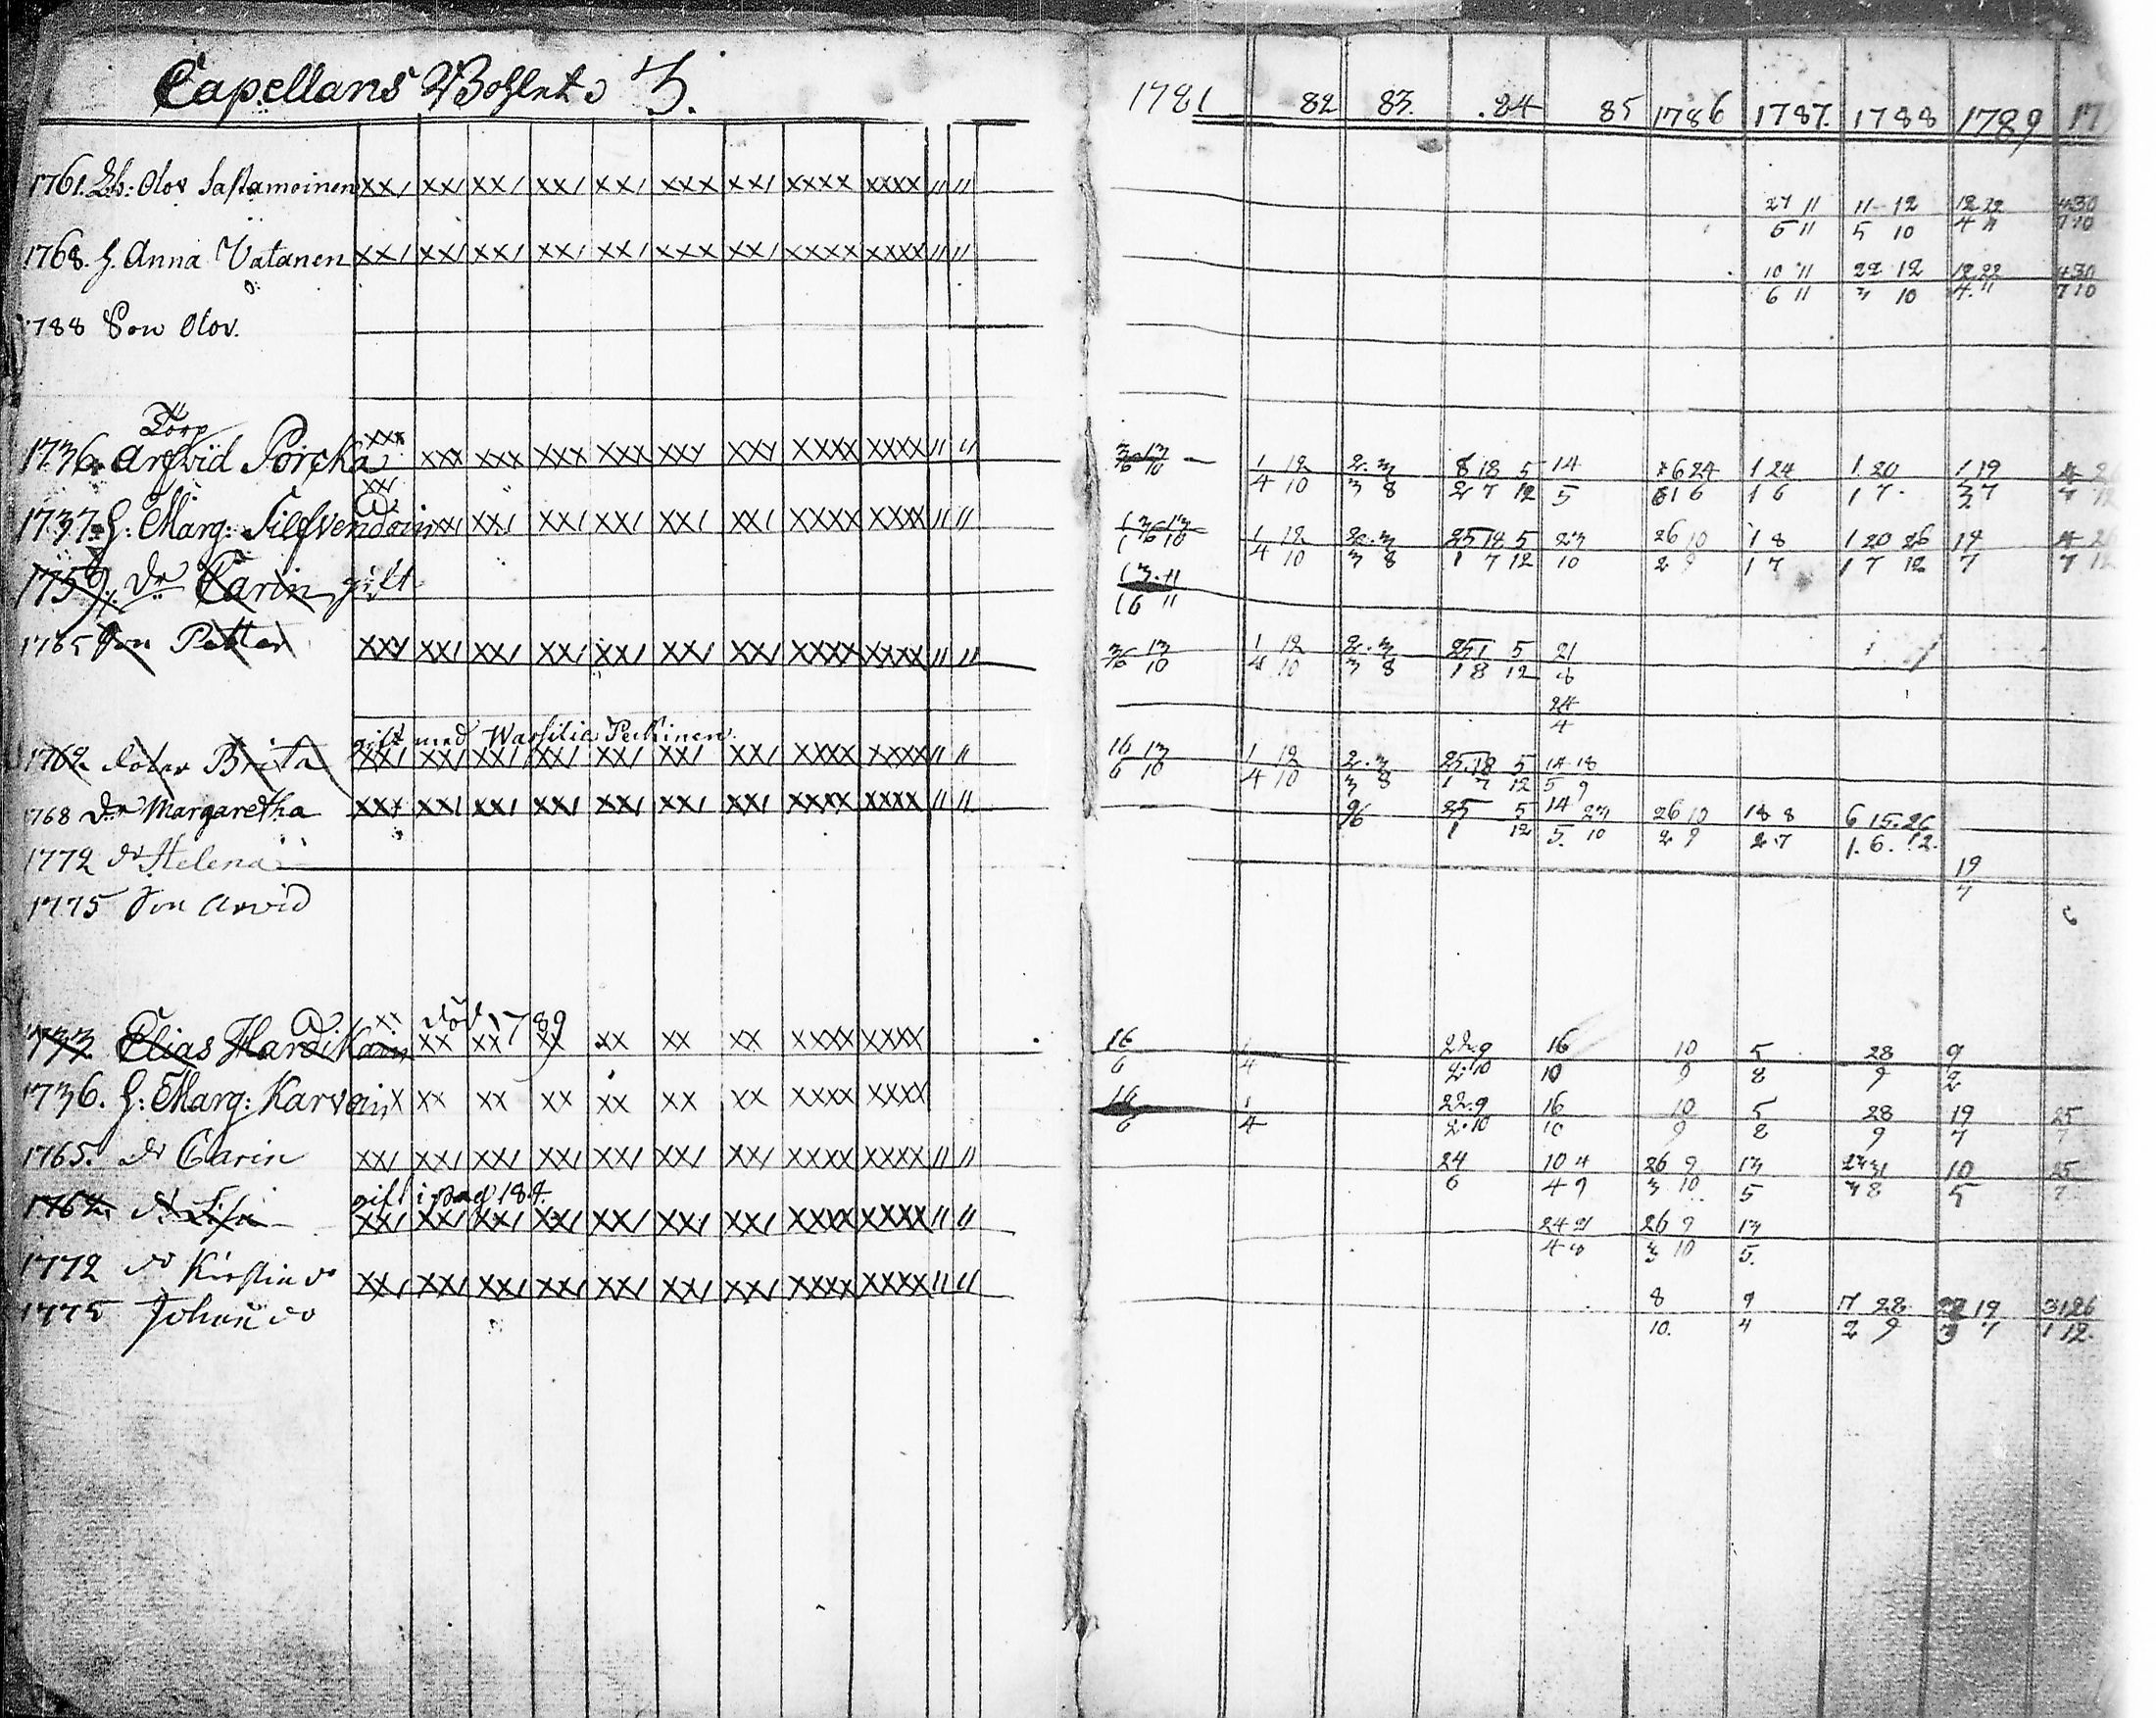 Capellans Bohlet 3.
1781 82 83. 84 85 1786 1787. 1788 1789
1761. Lb: Olov Sastamoinen xx/ xx/ xx/ xx/ xx/ xxx xx/ xxxx xxxx // // 27 11 11 12 12 22 4 30
5 11 5 10 4 11 7 10
1768. H. Anna Vatanen xx/ xx/ xx/ xx/ xx/ xxx xx/ xxxx xxxx // // 10 11 22 12 12 22 4 30
6 11 3 10 4. 11 7 10
1788 Son Olov.
Torp
1736. Arfvid Pörckä xxx xxx xxx xxx xxx xxx xxx xxxx xxxx // // 1 12 2. 3 8 18 5 14 6 24 1 24 1 20 1 19
4 10 3 8 2 7 12 5 1 6 1 6 1 7. 3 7
1737. H: Marg: Silfvendoin xx/ xx/ xx/ xx/ xx/ xx/ xxxx xxxx // // 1 12 2. 3 25 18 5 23 26 10 1 8 1 20 26 19
4 10 3 8 1 7 12 10 2 9 1 7 1 7 12 7
1759. dr Carin gift
16 11
1765 Son Petter xxx xx/ xx/ xx/ xx/ xx/ xx/ xxxx xxxx // // 3 13 1 12 2. 3 25 1 5 21
6 10 4 10 3 8 1 8 12 8
24
4
gift med Warsilia Pesikinen.
1762 doter Brita xx/ xx/ xx/ xx/ xx/ xx/ xx/ xxxx xxxx // // 16 13 1 12 2. 3 25. 18 5 14 18
6 10 4 10 3 8 1 7 12 5 9
1768 dr Margaretha xxx xx/ xx/ xx/ xx/ xx/ xx/ xxxx xxxx // // 9/6 25 5 14 23 26 10 18 8 6 15. 26
1 12 5. 10 2 9 2 7 1. 6. 12.
1772 dr Helena 19
7
1775 Son Arvid
xx död 1789
1733. Elias Hardikain xx xx xx xx xx xx xxxx xxxx 16 1 22. 9 16 10 5 28 9
6 4 2. 10 10 9 8 9 2
1736. H: Marg: Karvain x xx xx xx xx xx xx xxxx xxxx 16 1 22. 9 16 10 5 28 19 25
6 4 2. 10 10 9 8 9 7 7
1765. dr Carin xx/ xx/ xx/ xx/ xx/ xx/ xx/ xxxx xxxx // // 24 10 4 26 9 13 10 25
6 4 9 3 10 5 3 8 5 7
gift i pag 184.
1762. dr Lisa xx/ xx/ xx/ xx/ xx/ xx/ xx/ xxxx xxxx // // 24 21 26 9 13
4 8 3 10 5.
1772 dr Kirstin do xx/ xx/ xx/ xx/ xx/ xx/ xx/ xxxx xxxx // // 8 9 7 28 22 19 31 26
10. 4 2 9 3 7 1 12.
1775 Johan do